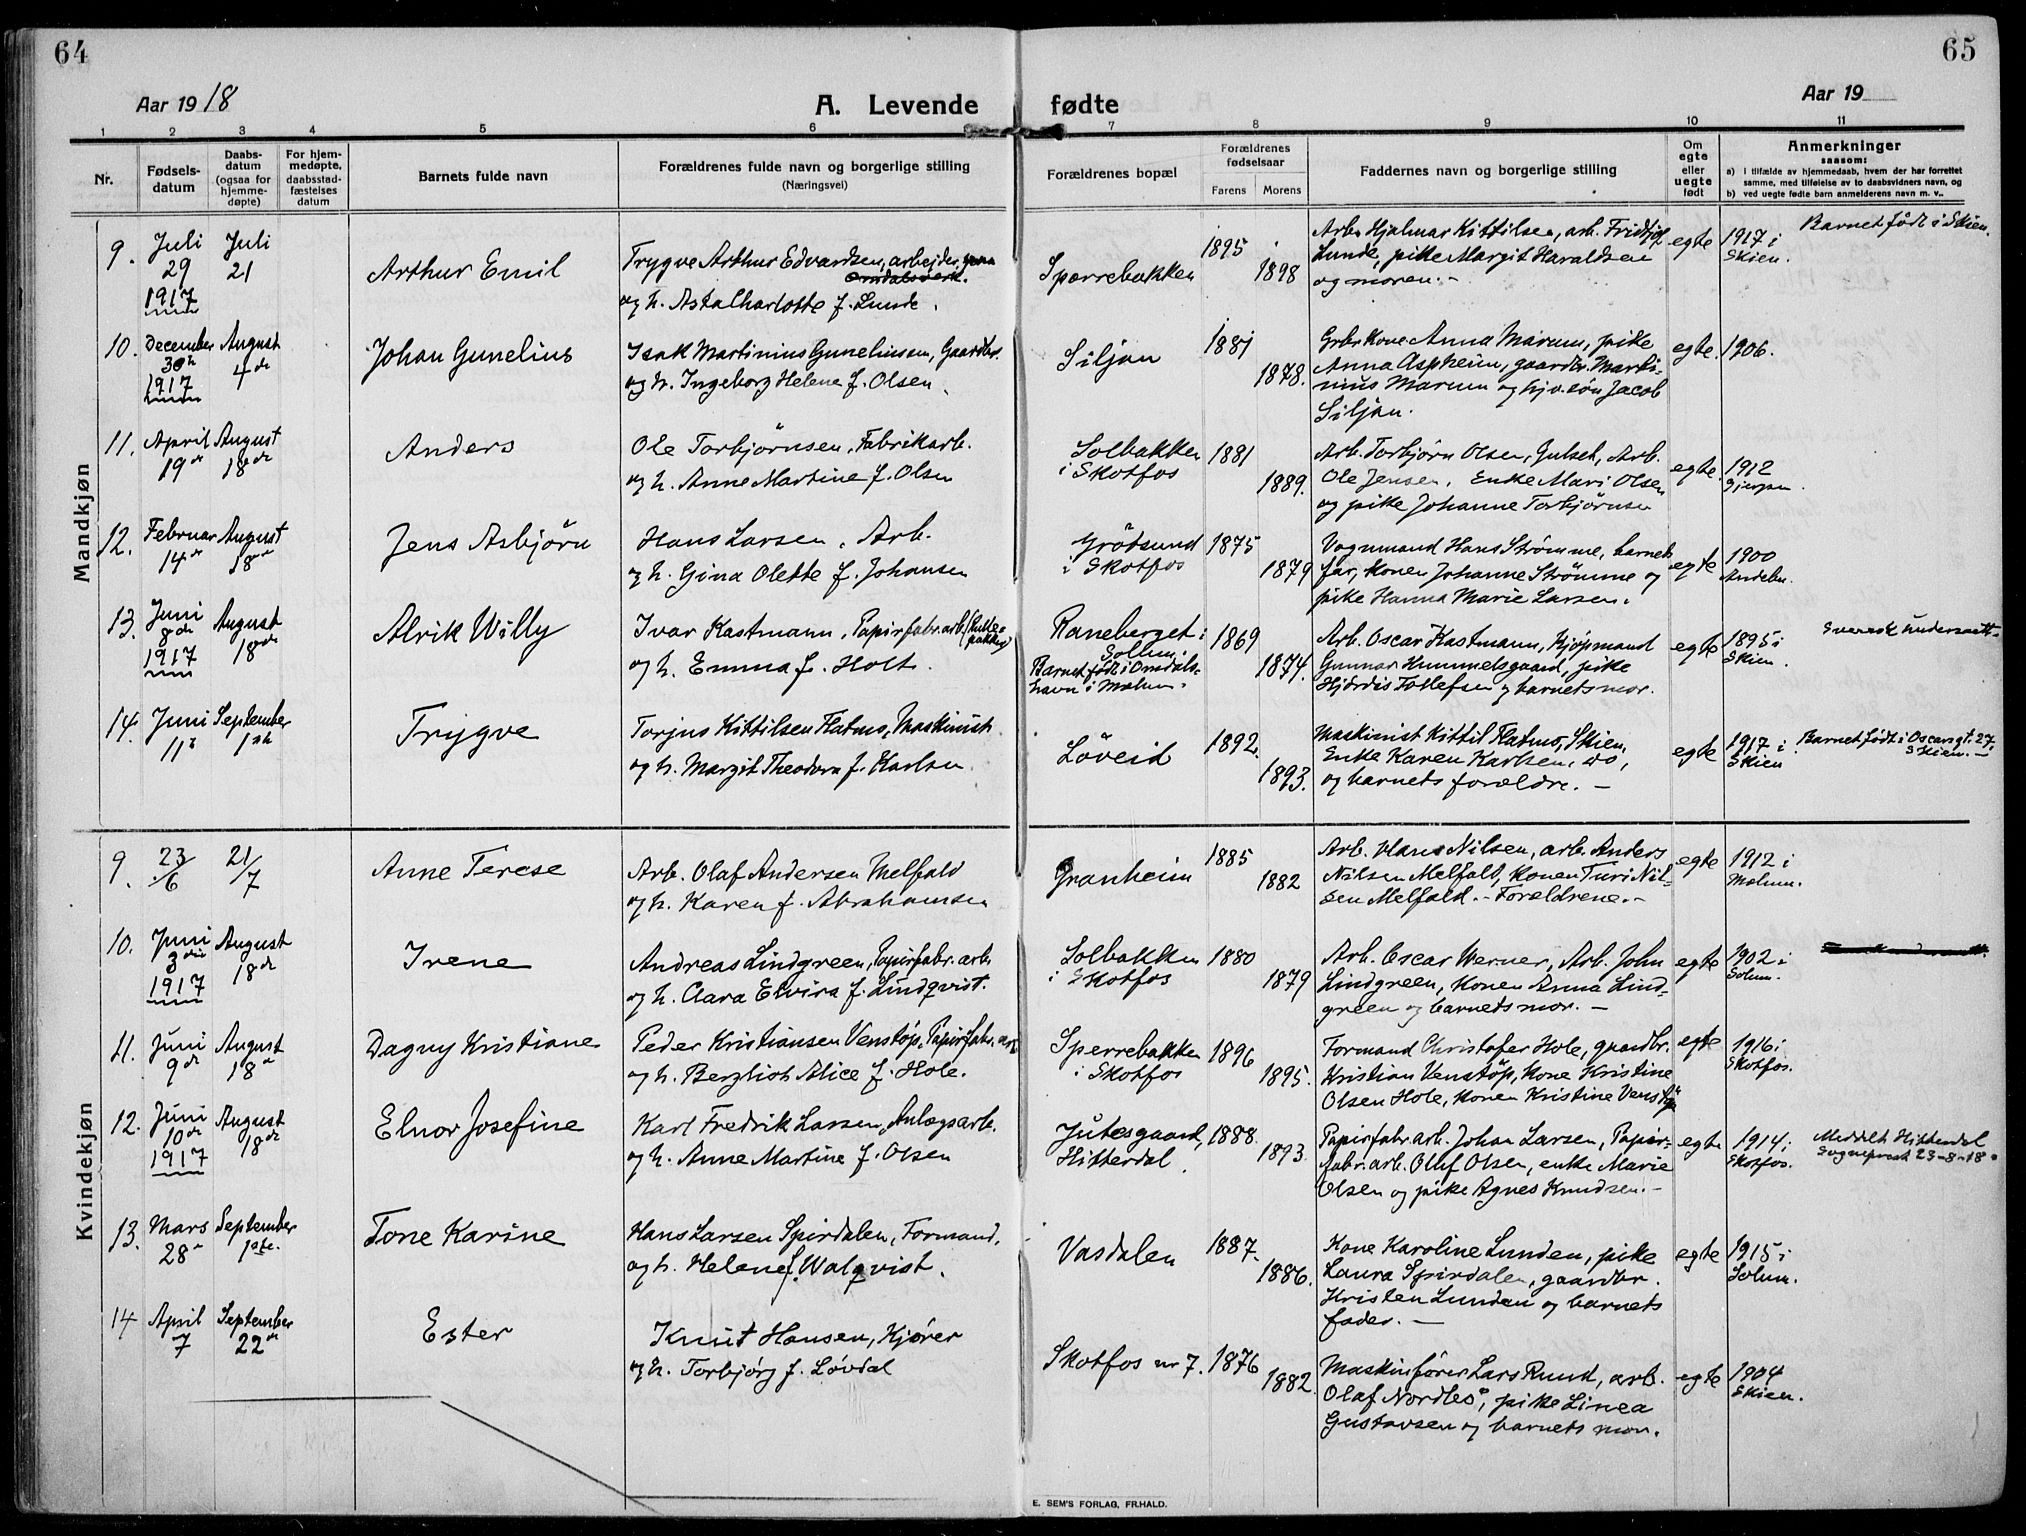 64
65
Aar 1918
A. Levende fødte
Aar 19
1 2 3 4 5 6 7 8 9 10 11
Nr.
Fødsels-
datum
Daabs-
datum
(ogsaa for
hjemme-
døpte)
For hjem-
medøpte,
daabsstad-
fæstelses
datum
Barnets fulde navn
Forældrenes fulde navn og borgerlige stilling
(Næringsvei)
Forældrenes bopæl
Forældrenes
fødselsaar
Farens Morens
Faddernes navn og borgerlige stilling
Om
egte
eller
uegte
født
Anmerkninger
saasom:
a) i tilfælde av hjemmedaab, hvem der har forrettet
samme, med tilføielse av to daabsvidners navn, og
b) ved uegte fødte barn anmelderens navn m. v..
Mandkjøn
9. Juli 29 1917
Juli 21
Arthur Emil
Trygve Arthur Edvardsen, arbejder
og h. Asta Charlotte f. Lunde.
Sperrebakken
1895
1898
Arb. Hjalmar Kittilsen, arb. Fridtjof
Lunde, pike Margit Haraldsen
og moren. -
egte
1917 i
Skien.
Barnet født i Skien.
10. December 30te 1917
August 4de
Johan Gunelius
Isak Martinius Gunelius­sen, Gaardbr.
og h. Ingeborg Helene f. Olsen.
Siljan
1881
1878.
Grbr. kone Anna Marum, pike
Anna Aspheim, gaardbr. Marti-
nius Marum og hjv. søn Jacob
Siljan.
egte.
1906.
11. April 19de
August 18de
Anders
Ole Torbjørnsen, Fabrikarb.
og h. Anne Martine f. Olsen
Solbakken
i Skotfos
1881
1889.
Arb. Torbjørn Olsen, Gulset, Arb.
Ole Jensen, Enke Mari Olsen
og pike Johanne Torbjørnsen
egte.
1912
Gjerpen.
12. Februar 14de
August 18de
Jens Asbjörn
Hans Larsen, Arb.
og h. Gina Olette f. Johansen
Grödsund
i Skotfos
1875
1879
Vognmand Hans Strømme, barnets
far, konen Johanne Strömme og
pike Hanna Marie Larsen.
egte
1900
Andebu.
13. Juni 8de 1917
August 18de
Alrik Willy
Ivar Kastmann, Papirfabr.arb. (Rulle-
pakker)
og h. Emma f. Holt.
Raneberget i
Sollum.
Barnet født i Omdals-
havn i Mælum.
1869
1874.
Arb. Oscar Kastmann, Kjøpmand
Gunnar Hummelsgaard, pike
Hjördis Tollefsen og barnets mor.
egte
1895 i
Skien.
Svensk undersaatt.
14. Juni 11te
September 1ste
Trygve
Torjus Kittilsen Flatmo, Maskinist
og h. Margit Theodora f. Karlsen.
Löveid
1892.
1893.
Maskinist Kittil Flatmo, Skien,
Enke Karen Karlsen, do,
og barnets forældre. -
egte
1917 i
Skien
Barnet født i Oscarsgt. 27,
Skien. -
Kvindekjøn
9. 23/6
21/7
Anne Terese
Arb. Olaf Andersen Melfald
og h. Karen f. Abrahamsen
Granheim
1885
1882
Arb. Hans Nilsen, arb. Anders
Nilsen Melfald, konen Turi Nil-
sen Melfald. - Forældrene. -
egte
1912 i
Mælum.
10. Juni 3die 1917
August 18de
Irene
Andreas Lindgreen, Papirfabr. arb.
og h. Clara Elvira f. Lindqvist.
Solbakken
i Skotfos
1880
1879
Arb. Oscar Werner, Arb. John
Lindgreen, konen Anna Lind-
green og barnets mor. -
egte
1902 i
Solum.
11. Juni 9de
August 18de
Dagny Kristiane
Peder Kristiansen Venstöp, Papirfabr. arb
og h. Bergliot Alice f. Hole.
Sperrebakken
i Skotfos
1896
1895.
Formand Christofer Hole, gaardbr.
Kristian Venstöp, kone Kristine
Olsen Hole, konen Kristine Venstöp
egte
1916 i
Skotfos.
12. Juni 10de 1917
August 18de
Elnor Josefine
Karl Fredrik Larsen, Anlægsarb.
og h. Anne Martine f. Olsen
Jutesgaard,
Hitterdal.
1888.
1893.
Papirfabr.arb. Johan Larsen, Papir-
fabr.arb. Oluf Olsen, enke Marie
Olsen og pike Agnes Knudsen. -
egte
1914 i
Skotfos.
Meddelt Hitterdal
Sogneprest 23-8-18.
13. Mars 28de
September 1ste.
Tone Karine
Hans Larsen Spirdalen, Formand,
og h. Helene f. Walqvist.
Vasdalen
1887.
1886.
Kone Karoline Lunden, pike
Laura Spirdalen, gaardbr.
Kristen Lunden og barnets
fader. -
egte
1915 i
Solum.
14 April 7
September 22de
Ester
Knut Hansen, Kjører
og h. Torbjørg f. Løvdal
Skotfos nr 7.
1876
1882.
Maskinfører Lars Ruud, arb.
Olaf Nordbö, pike Linea
Gustavsen og barnets mor.
egte
1904
Skien.
E. SEM'S FORLAG, FR.HALD.